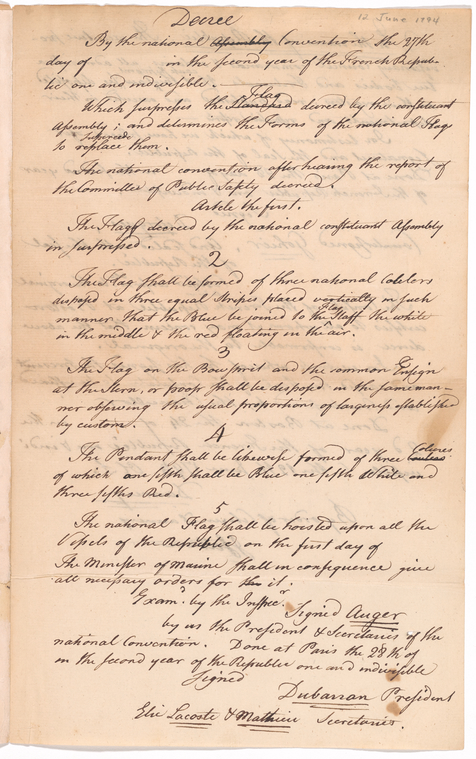 12 June 1794
Decree
By the national Assembly Convention the 27th
day of in the second year of the French Repub-
lic one and indivisible.
Flag
Which surpresses the Standred decreed by the constituant
Assembly; and determines the Forms of the national Flags
to replace them.
The national convention after hearing the report of
the Committee of Public Safety decreed.
Article the first.
The Flag decreed by the national constituant Assembly
is surpressed.
2
The Flag shall be formed of three national Colelers
disposed in three equal Stripes placed vertically in such
manner that the Blue be joined to the Staff the white
in the middle & the red floating in the air.
3
The Flag on the Bowsprit and the common Ensign
at the Stern, or poop shall be disposed in the same man-
ner observing the usual proportions of largeness established
by custom.
4
The Pendant shall be likewise formed of three Colores
of which one fifth shall be Blue one fifth White and
three fifths Red.
5
The national Flag shall be hoisted upon all the
Vessels of the Republic on the first day of
The Minister of Marine shall in consequence give
all necessary orders for it.
Exam.d by the Inspec.r Signed Auger
by us the President & Secretaries of the
national Convention. Done at Paris the 28th of
in the second year of the Republic one and indivisible
Signed
Dubarran President
Elie Lacoste & Mathieu Secretaries.